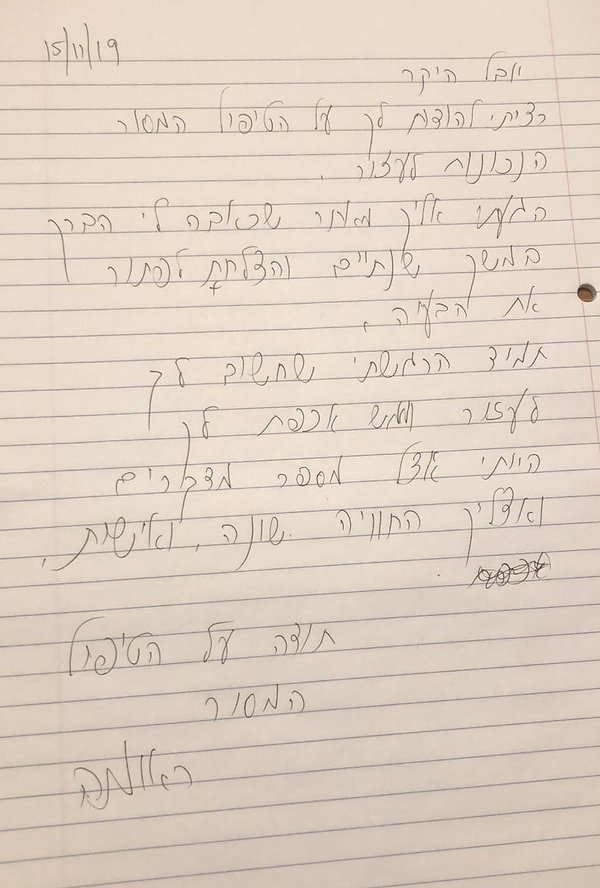 15/11/19
יובל היקר
רציתי להודות לך על הטיפול המסור
הנכונות לעזור.
הגעתי אליך מאחר שכאבה לי הברך
במשך שנתיים והצלחת לפתור
את הבעיה.
תמיד הרגשתי שחשוב לך
לעזור וממש אכפת לך
הייתי אצל מספר מדברים
ואצליך החוויה שונה, ואישית.
תודה על הטיפול
המסור
ראומה